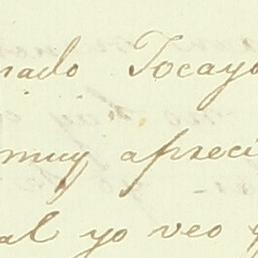 rado Tocayo
muy apreci
al yo veo